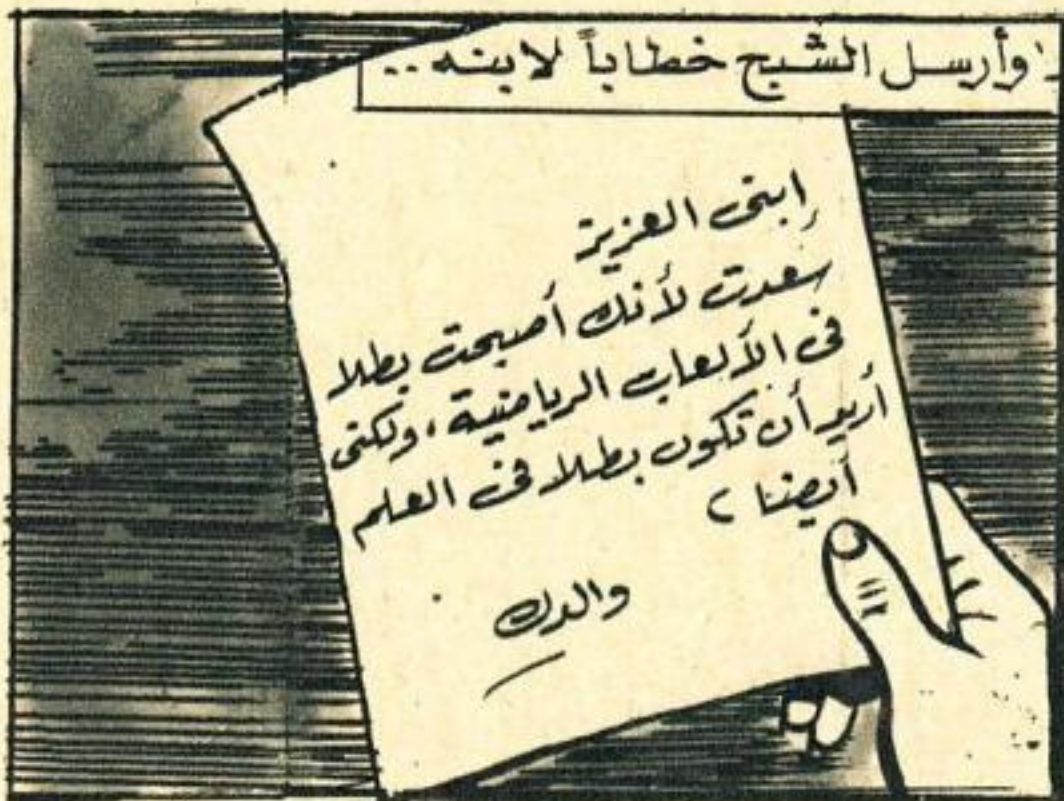 وأرسل الشيخ خطاباً لابنه ..
إبنى العزيز
سعدت لأنك أصبحت بطلا
فى الألعاب الرياضية ، ولكنى
أريد أن تكون بطلا فى العلم
أيضا ،
والدك